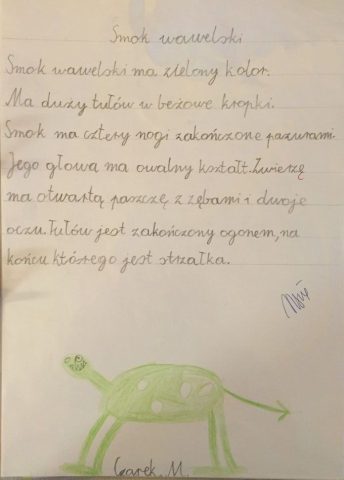 Smok wawelski
Smok wawelski ma zielony kolor.
Ma duży tułów w beżowe kropki.
Smok ma cztery nogi zakończone pazurami.
Jego głowa ma owalny kształt. Zwierzę
ma otwartą paszczę z zębami i dwoje
oczu. Tułów jest zakończony ogonem, na
końcu którego jest strzałka.
M.